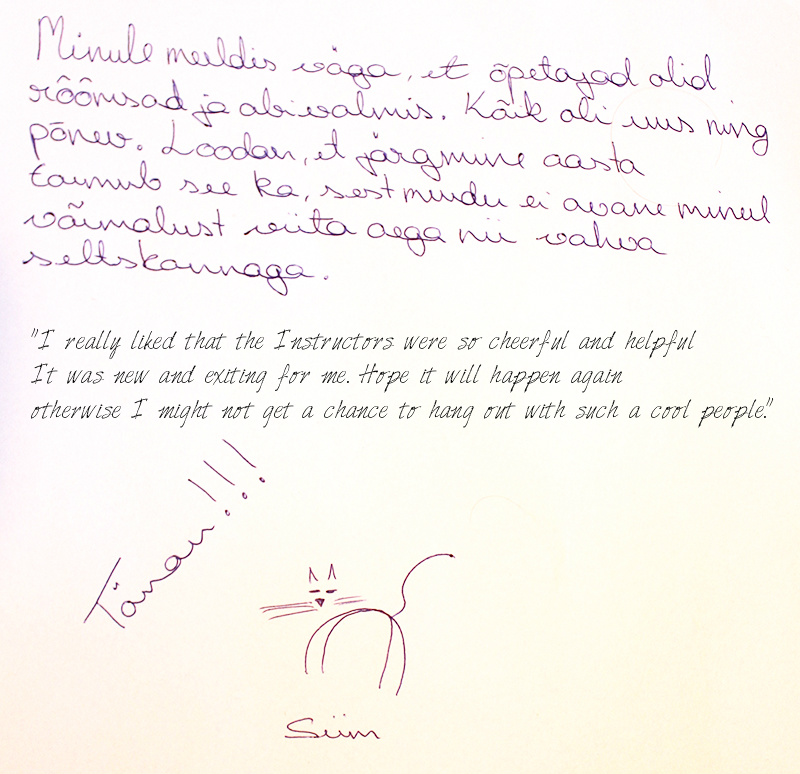 Minule meeldis väga, et õpetajad olid
rõõmsad ja abivalmis. Kõik oli uus ning
põnev. Loodan, et järgmine aasta
toimub see ka, sest muidu ei avane minul
võimalust viita aega nii vahva
seltskonnaga.
"I really liked that the Instructors were so cheerful and helpful
It was new and exiting for me. Hope it will happen again
otherwise I might not get a chance to hang out with such a cool people."
Tänan!!!
Siim